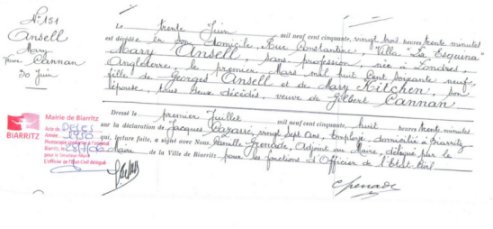 N° 151
Ansell
Mary
Veuve Cannan
30 Juin
Le trente Juin, mil neuf cent cinquante, vingt trois heures trente minutes
est décédée en son domicile, Rue Constantine, Villa "La Esquina"
Mary Ansell, sans profession, née à Londres,
Angleterre, le premier Mars mil huit cent soixante neuf,
fille de Georges Ansell et de Mary Kitchen, son
épouse, tous deux décédés, veuve de Gilbert Cannan
Dressé le premier Juillet mil neuf cent cinquante, huit heures trente minutes
sur la déclaration de Jacques, vingt sept ans, Employé, domicilié à Biarritz
qui, lecture faite, a signé avec Nous, Adjoint au Maire, délégué par le
Maire de la Ville de Biarritz, pour les fonctions d'Officier de l'Etat-Civil
Mairie de Biarritz
Acte de Décès
BIARRITZ
Photocopie conforme à l'original
Biarritz, le
pour le Sénateur-Maire
L'Officier de l'Etat Civil délégué